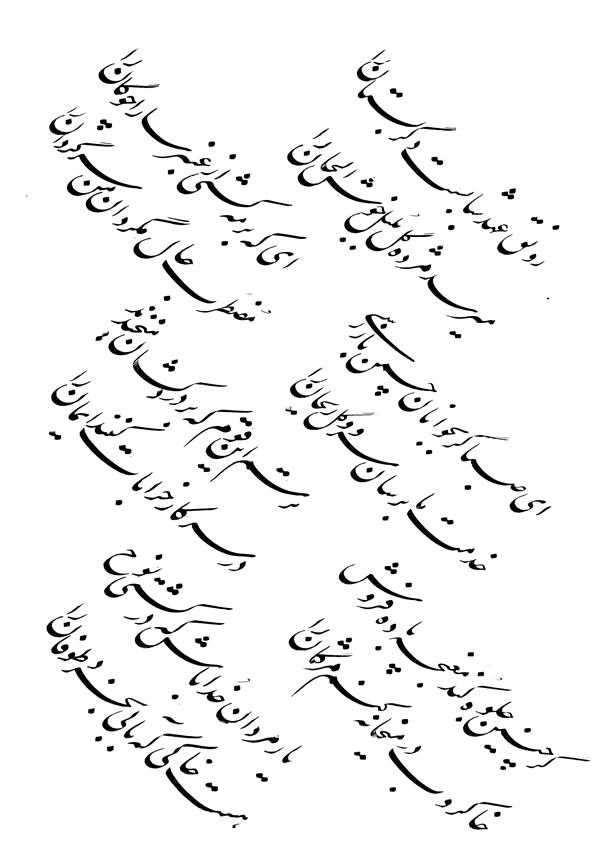 رونق عهد شبابست دگر بستان را
میرسد مژده گل بلبل خوش الحان را
ای صبا گر بجوانان چمن باز رسی
خدمت ما برسان سرو و گل و ریحان را
گر چنین جلوه کند مغبچه باده فروش
خاکروب در میخانه کنم مژگان را
ای که بر مه کشی از عنبر سارا چوگان را
مضطرب حال مگردان من سرگردان را
ترسم این قوم که بر دردکشان میخندند
در سر کار خرابات کنند ایمان را
یار مردان خدا باش که در کشتی نوح
هست خاکی که به آبی نخرد طوفان را